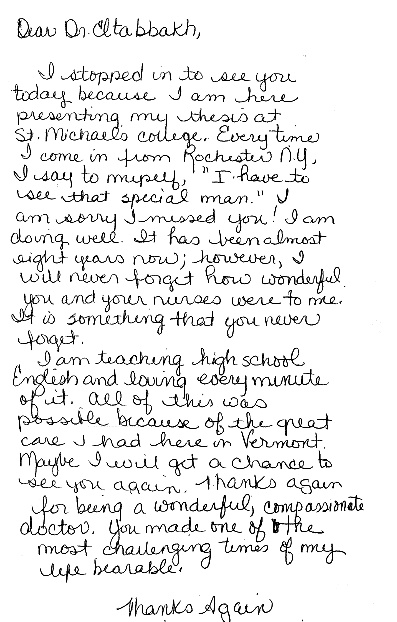 Dear Dr. Eltabbakh,
I stopped in to see you
today because I am here
presenting my thesis at
St. Michaels college. Everytime
I come in from Rochester N.Y,
I say to myself, "I have to
see that special man." I
am sorry I missed you! I am
doing well. It has been almost
eight years now; however, I
will never forget how wonderful
you and your nurses were to me.
It is something that you never
forget.
I am teaching high school
English and loving every minute
of it. All of this was
possible because of the great
care I had here in Vermont.
Maybe I will get a chance to
see you again. Thanks again
for being a wonderful, compassionate
doctor. You made one of the
most challenging times of my
life bearable.
Thanks Again